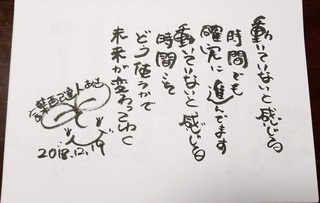 動いていないと感じる
時間でも
確実に進んでます
動いていないと感じる
時間こそ
どう使うかで
未来が変わってゆく
2018.12.19